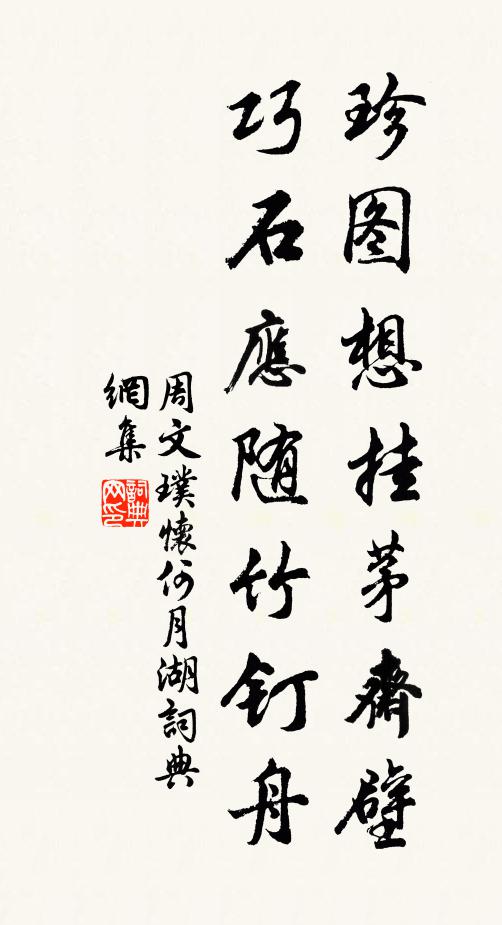 珍图想挂茅齋壁
巧石應随竹钉舟
周文璞懷何月湖詞典
網集
詞典
网印